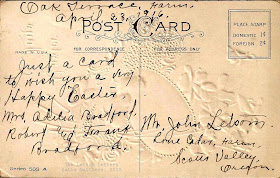 Oak Terrace, Farm.
April 23, 1916.
POST CARD
PLACE STAMP HERE
DOMESTIC 1¢
FOREIGN 2¢
MADE IN U.S.A.
FOR CORRESPONDENCE
FOR ADDRESS ONLY
Just a card
to wish you a very
Happy Easter
Mrs. Adelia Bradford.
Robert and
Bradford.
Mr. John
Lone Farm,
Scotts Valley,
Oregon.
Series 509 A